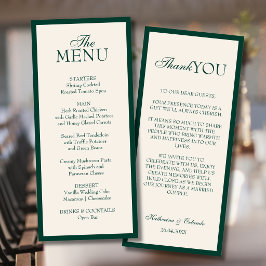 The
MENU
STARTERS
Shrimp Cocktail
Roasted Tomato Soup
MAIN
Herb Roasted Chicken
with Garlic Mashed Potatoes
and Honey Glazed Carrots
Seared Beef Tenderloin
with Truffle Potatoes
and Green Beans
Creamy Mushroom Pasta
with Spinach and
Parmesan Cheese
DESSERT
Vanilla Wedding Cake
Macarons
DRINKS & COCKTAILS
Open Bar
Thank YOU
TO OUR DEAR GUESTS,
YOUR PRESENCE TODAY IS A
GIFT WE'LL ALWAYS CHERISH.
IT MEANS SO MUCH TO SHARE
THIS MOMENT WITH THE
PEOPLE WHO BRING WARMTH
AND HAPPINESS INTO OUR
LIVES.
WE INVITE YOU TO
CELEBRATE WITH US, ENJOY
THE EVENING, AND HELP US
CREATE MEMORIES WE'LL
HOLD CLOSE AS WE BEGIN
OUR JOURNEY AS A MARRIED
COUPLE.
Katherine &